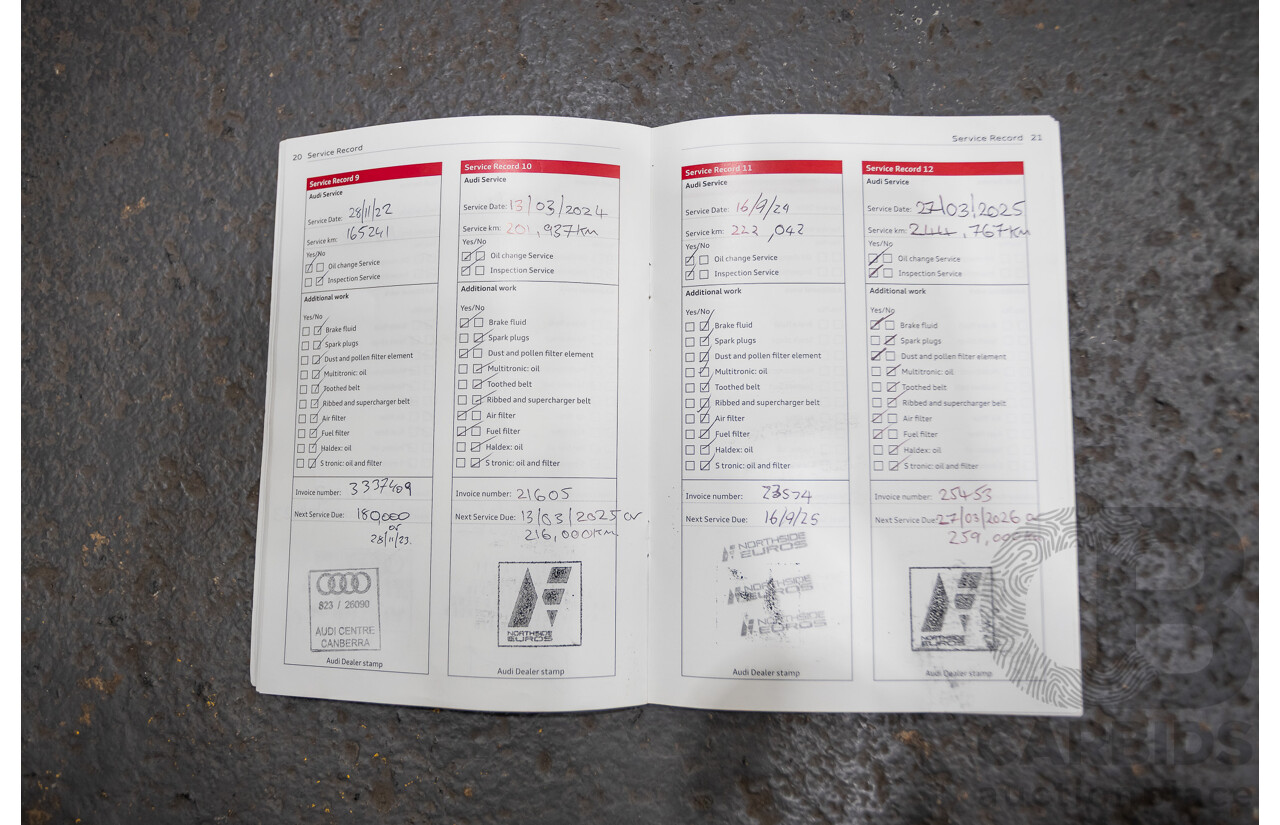 20 Service Record
Service Record 9
Audi Service
Service Date: 28/11/22
Service km: 165241
Yes/No
Oil change Service
Inspection Service
Additional work
Yes/No
Brake fluid
Spark plugs
Dust and pollen filter element
Multitronic: oil
Toothed belt
Ribbed and supercharger belt
Air filter
Fuel filter
Haldex: oil
S tronic: oil and filter
Invoice number: 3337409
Next Service Due: 180,000
or
28/11/23.
823 / 26090
AUDI CENTRE
CANBERRA
Audi Dealer stamp
Service Record 10
Audi Service
Service Date: 13/03/2024
Service km: 201,937km
Yes/No
Oil change Service
Inspection Service
Additional work
Yes/No
Brake fluid
Spark plugs
Dust and pollen filter element
Multitronic: oil
Toothed belt
Ribbed and supercharger belt
Air filter
Fuel filter
Haldex: oil
S tronic: oil and filter
Invoice number: 21605
Next Service Due: 13/03/2025 or
216,000km
NORTHSIDE
EUROS
Audi Dealer stamp
Service Record 21
Service Record 11
Audi Service
Service Date: 16/9/24
Service km: 222,042
Yes/No
Oil change Service
Inspection Service
Additional work
Yes/No
Brake fluid
Spark plugs
Dust and pollen filter element
Multitronic: oil
Toothed belt
Ribbed and supercharger belt
Air filter
Fuel filter
Haldex: oil
S tronic: oil and filter
Invoice number: 23574
Next Service Due: 16/9/25
NORTHSIDE
EUROS
NORTHSIDE
EUROS
NORTHSIDE
EUROS
Audi Dealer stamp
Service Record 12
Audi Service
Service Date: 27/03/2025
Service km: 244,767km
Yes/No
Oil change Service
Inspection Service
Additional work
Yes/No
Brake fluid
Spark plugs
Dust and pollen filter element
Multitronic: oil
Toothed belt
Ribbed and supercharger belt
Air filter
Fuel filter
Haldex: oil
S tronic: oil and filter
Invoice number: 25453
Next Service Due: 27/03/2026 or
259,000km
NORTHSIDE
EUROS
Audi Dealer stamp